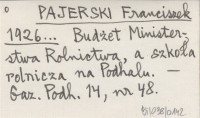 PAJERSKI Franciszek
1926... Budżet Minister-
stwa Rolnictwa, a szkoła
rolnicza na Podhalu. —
Gaz. Podh. 14, nr 48.